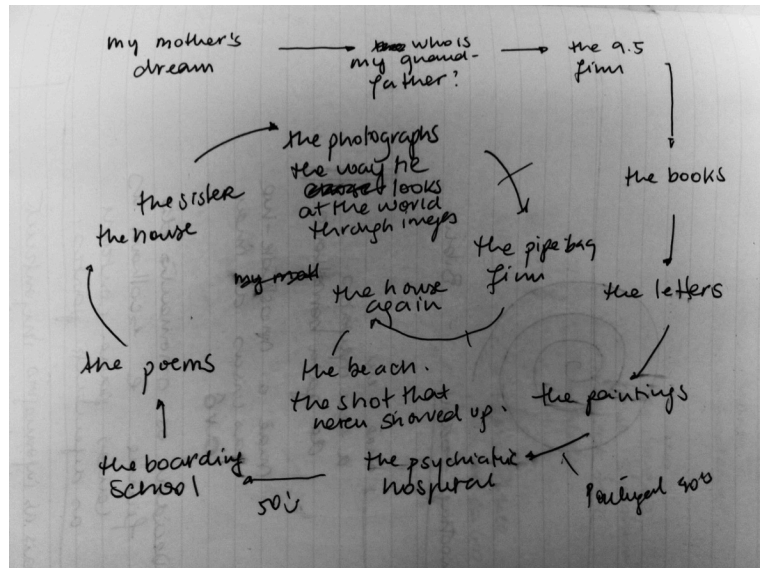 my mother's
dream
who is
my grand-
father?
the 9.5
film
the books
the letters
the paintings
Portugal 40s
the psychiatric
hospital
50's
the boarding
school
the poems
the sister
the house
the photographs
the way he
looks
at the world
through images
the pipe bag
film
the house
again
the beach.
the shot that
never showed up.